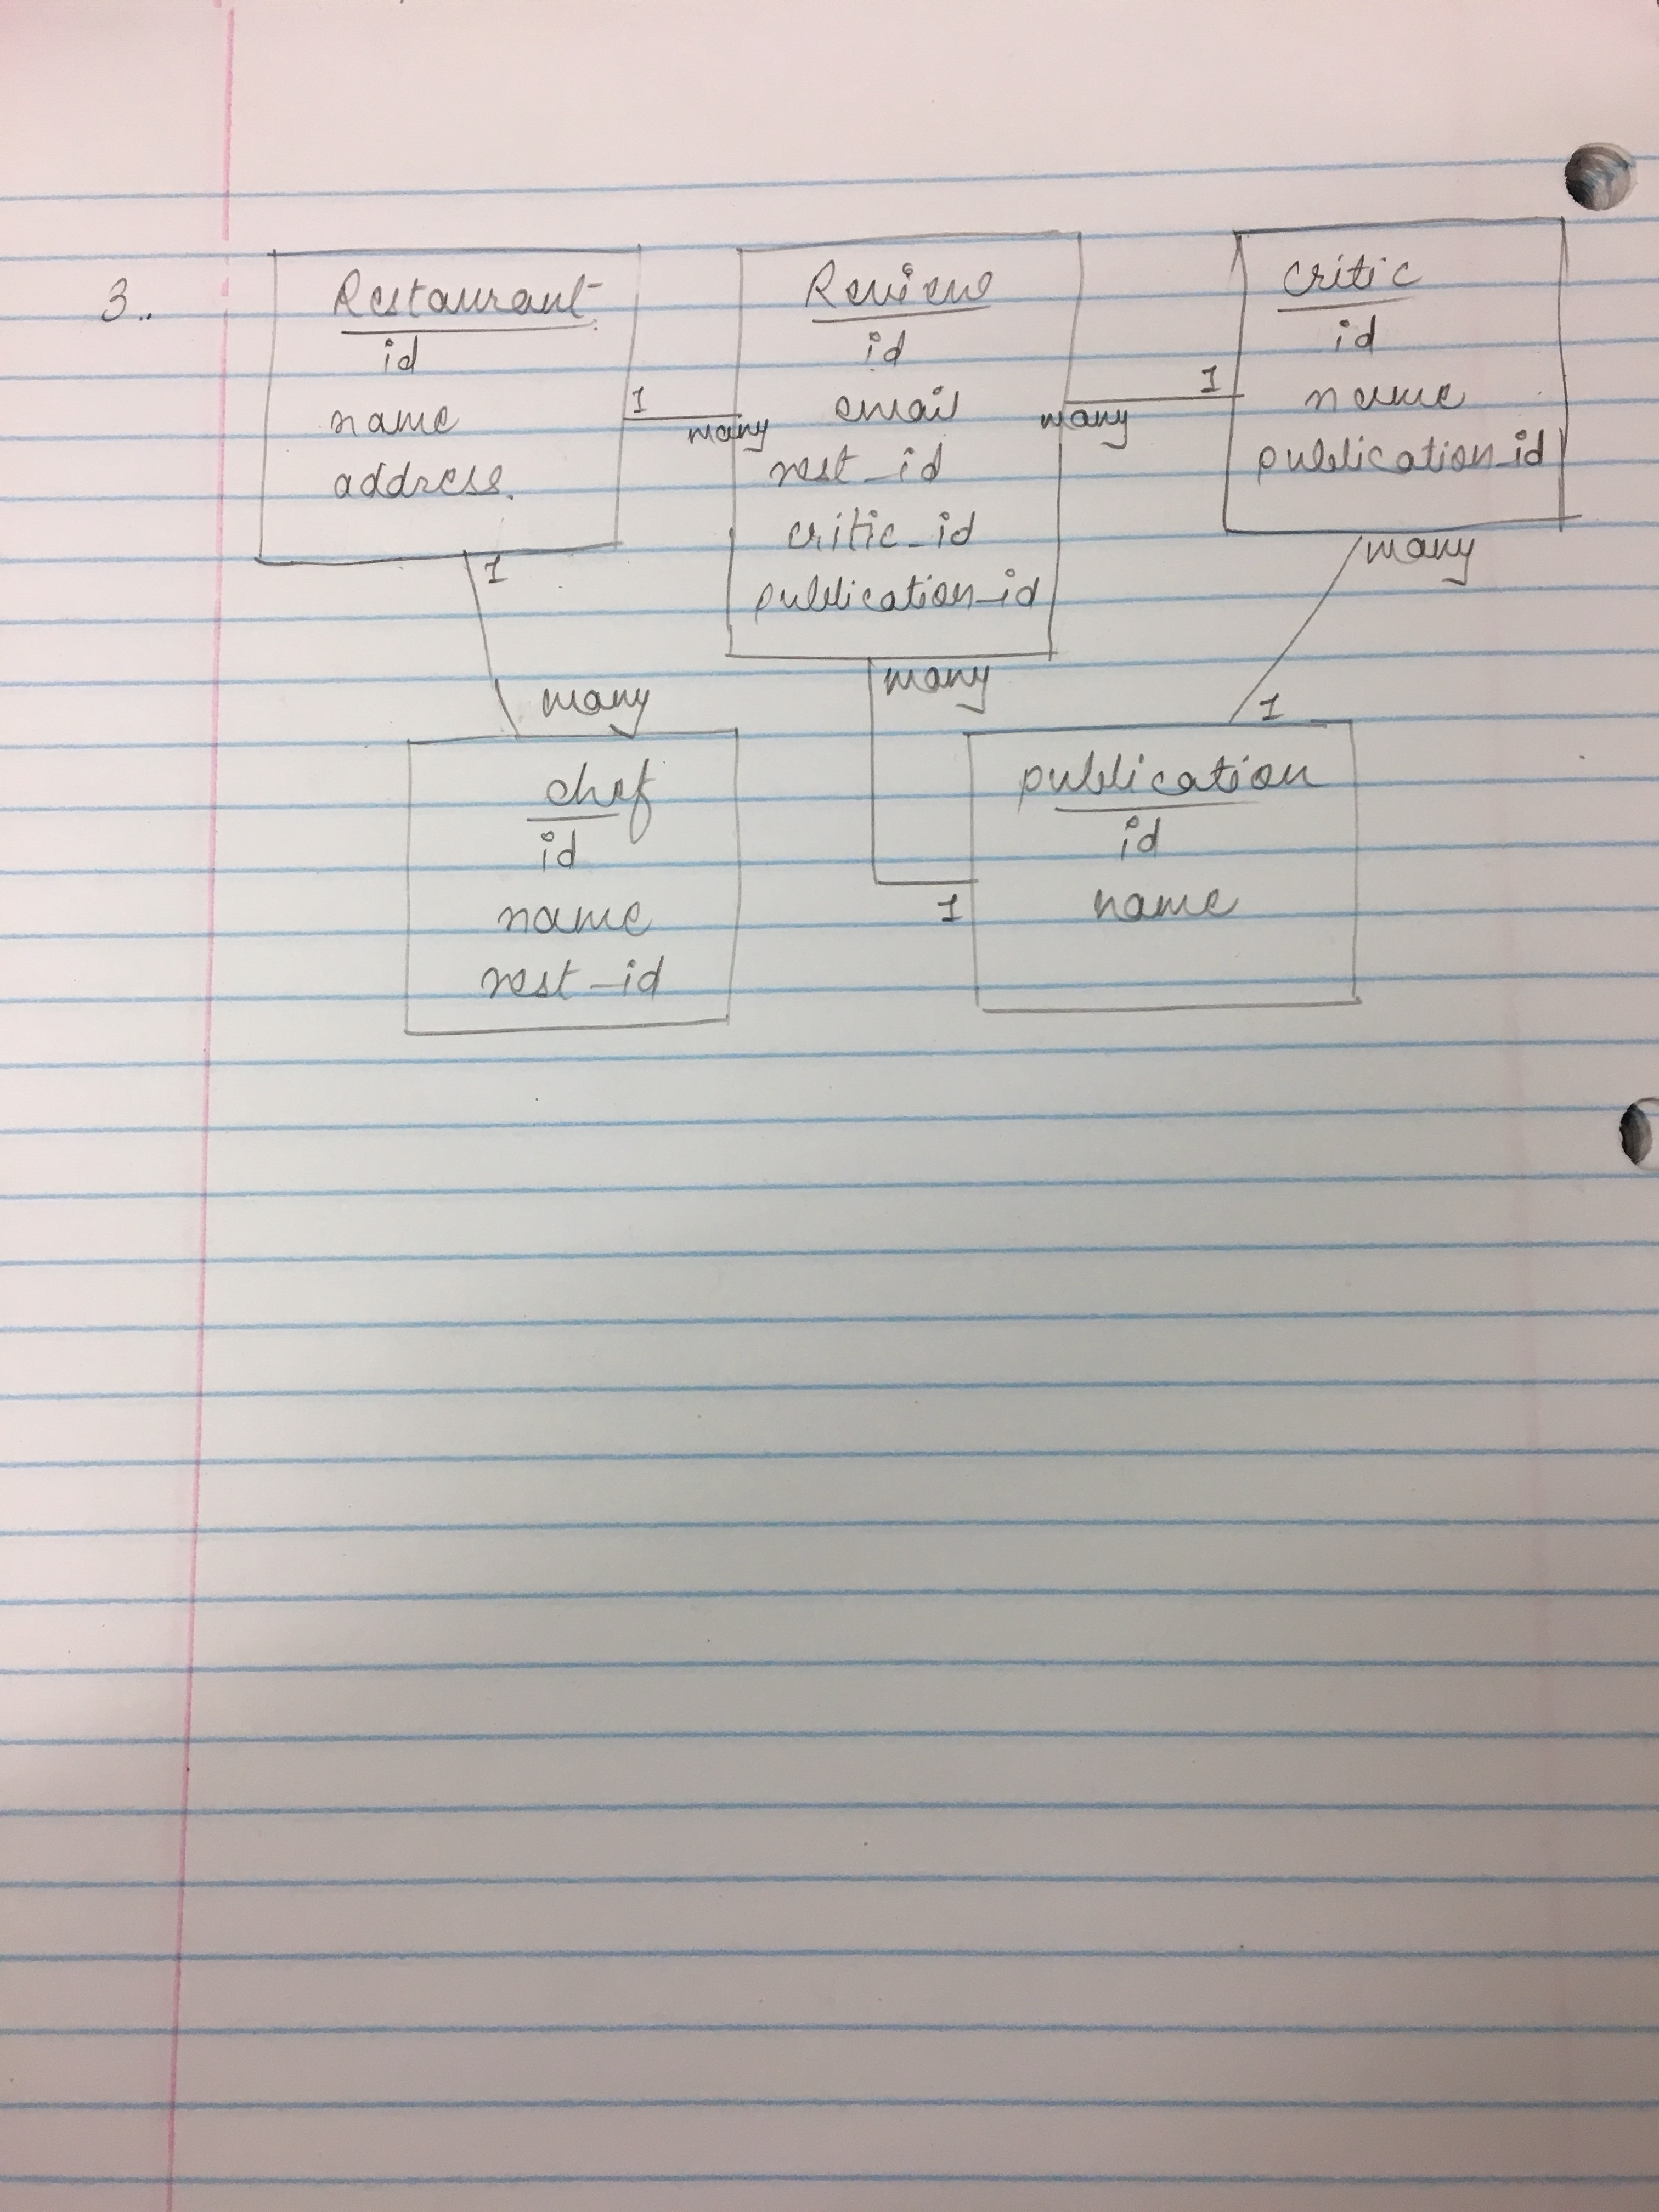 3..
Restaurant
id
name
address.
1
many
Review
id
email
rest_id
critic_id
publication_id
many
1
critic
id
name
publication_id
1
many
chef
id
name
rest_id
many
1
many
1
publication
id
name